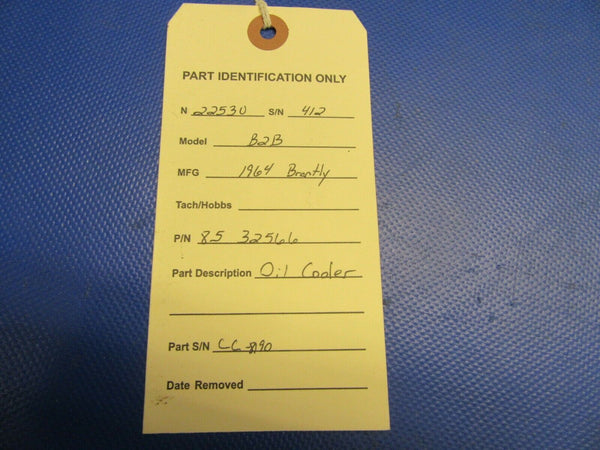 PART IDENTIFICATION ONLY
N 22530 S/N 412
Model B2B
MFG 1964 Brantly
Tach/Hobbs
P/N 85 32566
Part Description Oil Cooler
Part S/N CC
Date Removed